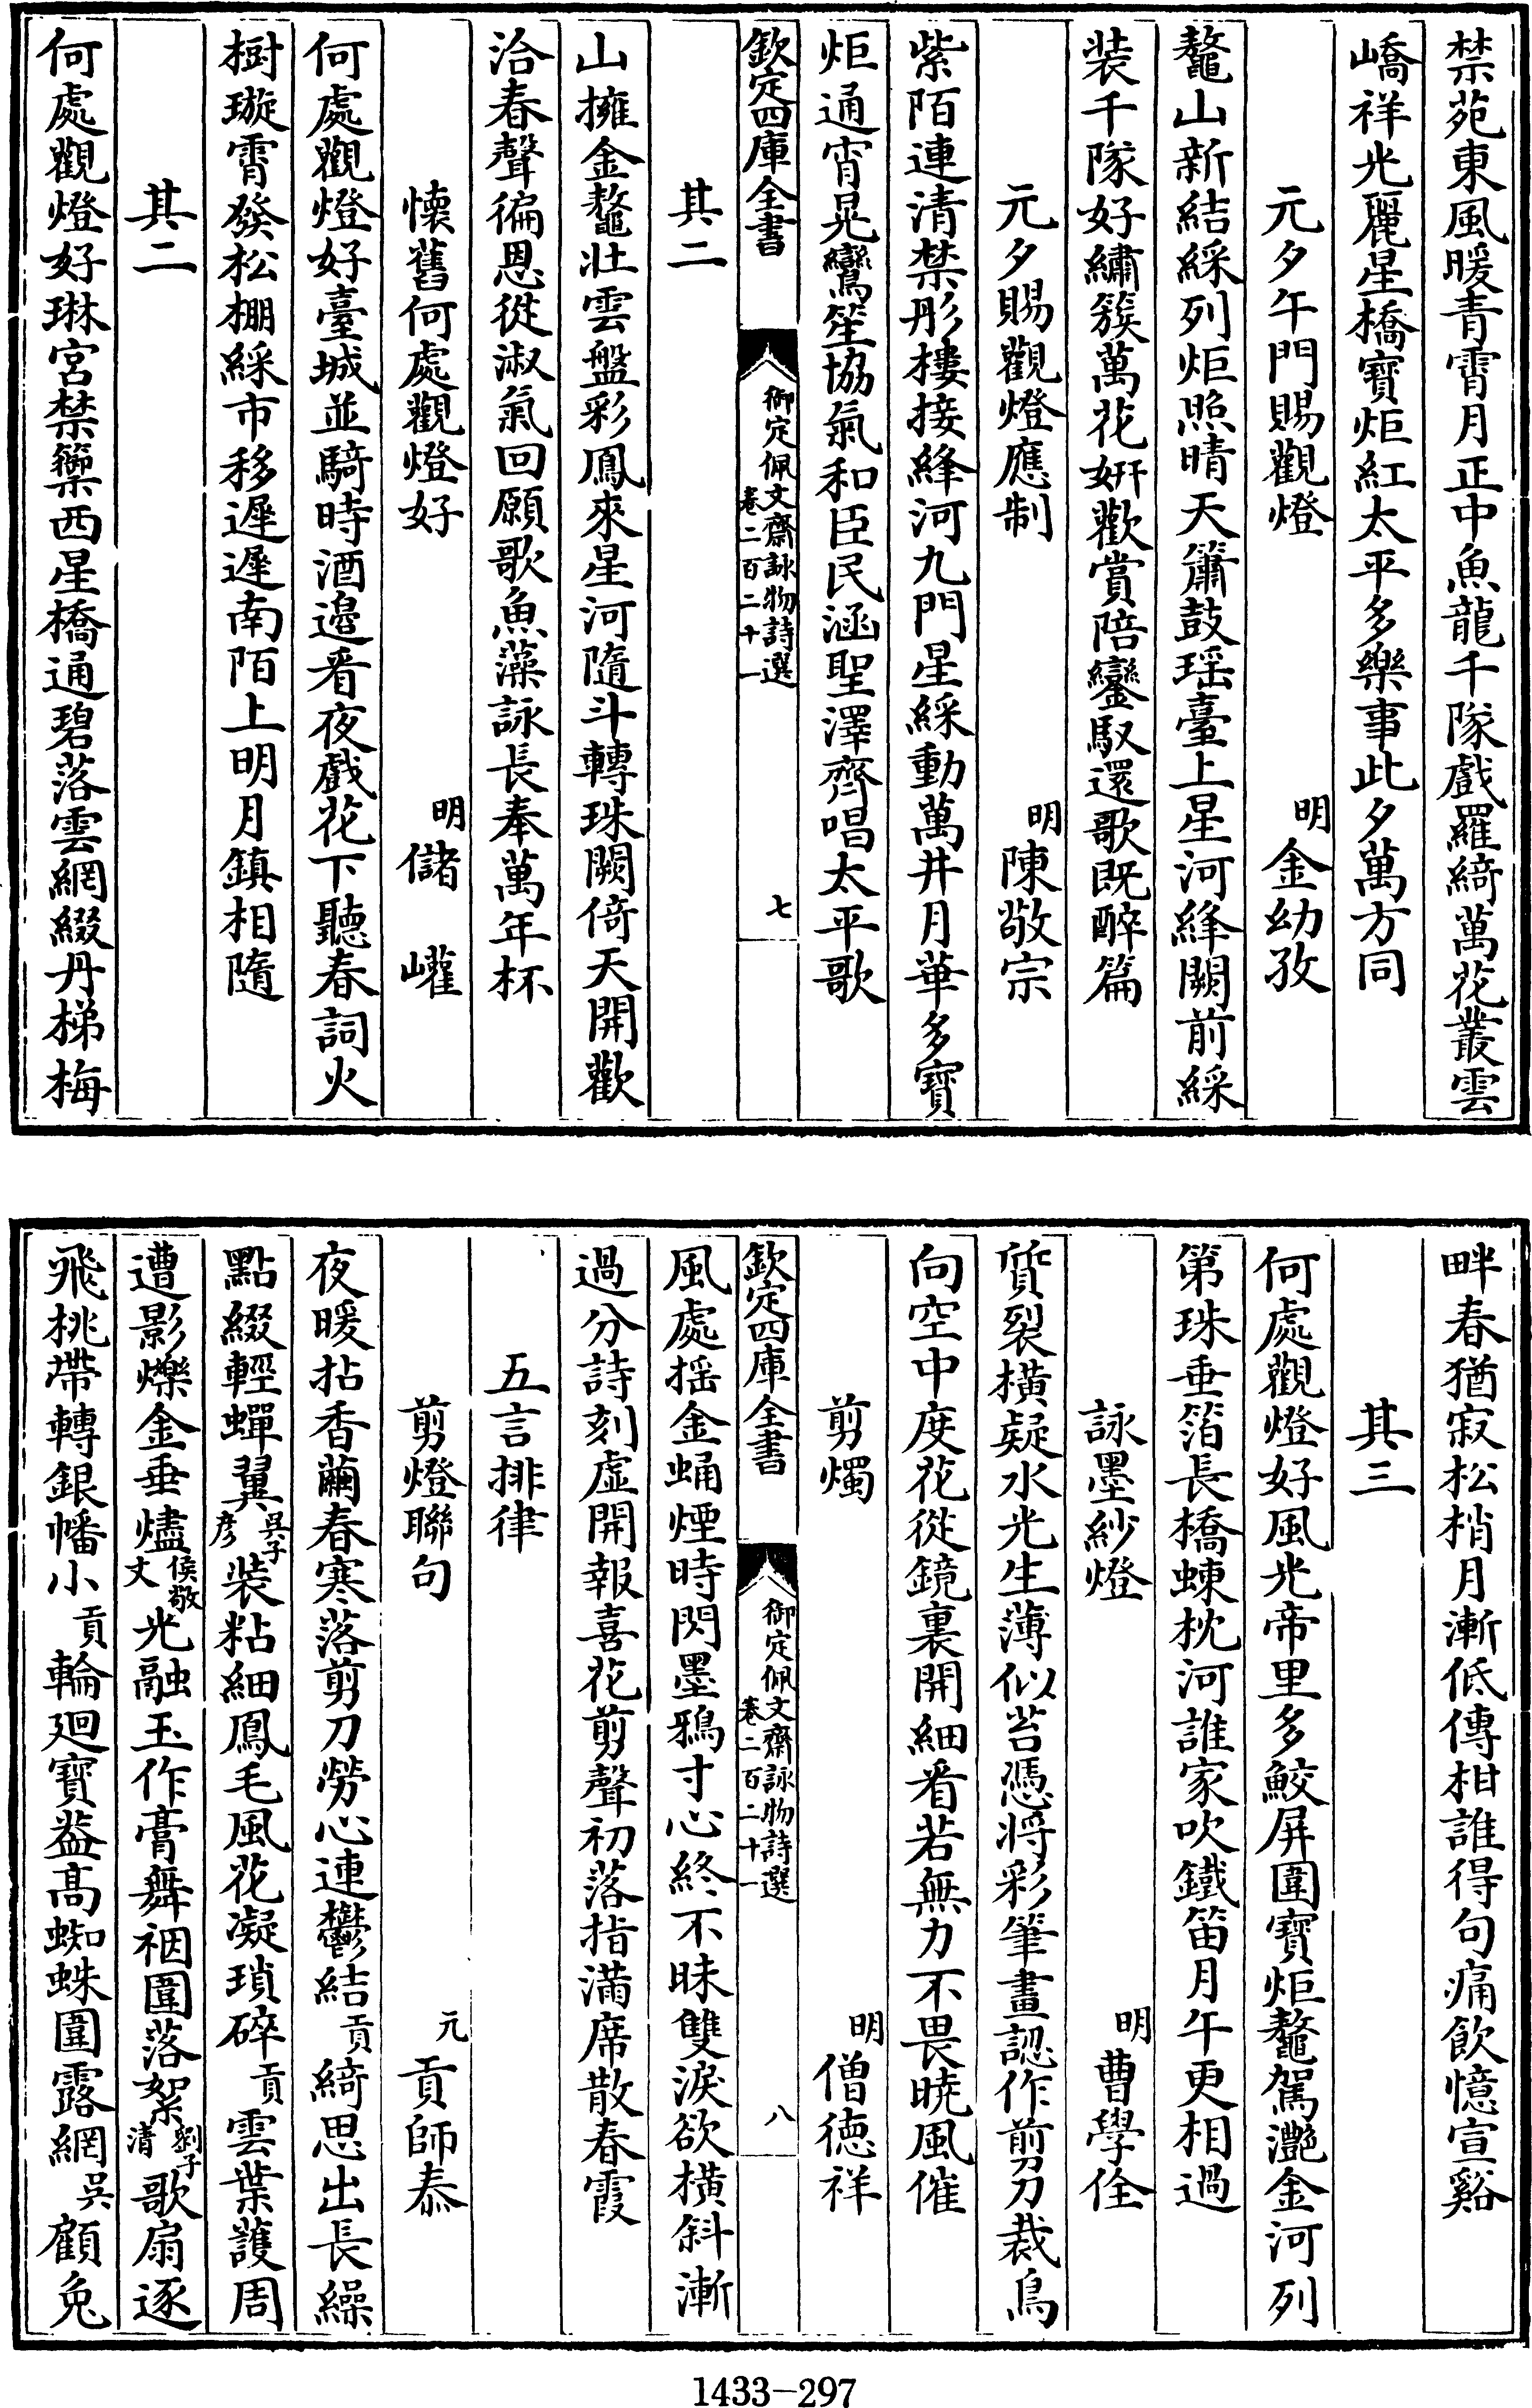 禁苑東風暖青霄月正中魚龍千隊戲羅綺萬花叢雲
嶠祥光麗星橋寶炬紅太平多樂事此夕萬方同
元夕午門賜觀燈 明 金幼孜
鼇山新結綵列炬照晴天簫鼓瑶臺上星河絳闕前綵
装千隊好繡簇萬花妍歡賞陪鑾馭還歌既醉篇
元夕賜觀燈應制 明 陳敬宗
紫陌連清禁彤樓接絳河九門星綵動萬井月華多寶
炬通宵晃鸞笙協氣和臣民涵聖澤齊唱太平歌
欽定四庫全書 御定佩文齋詠物詩選 卷二百二十一 七
其二
山擁金鼇壯雲盤彩鳳來星河隨斗轉珠闕倚天開歡
洽春聲徧恩從淑氣回願歌魚藻詠長奉萬年杯
懷舊何處觀燈好 明 儲巏
何處觀燈好臺城並騎時酒邉看夜戲花下聽春詞火
樹璇霄發松棚綵市移遲遲南陌上明月鎮相隨
其二
何處觀燈好琳宮禁籞西星橋通碧落雲網綴丹梯梅
畔春猶寂松梢月漸低傳柑誰得句痛飲憶宣谿
其三
何處觀燈好風光帝里多鮫屏圍寶炬鼇駕灔金河列
第珠垂箔長橋蝀枕河誰家吹鐵笛月午更相過
詠墨紗燈 明 曹學佺
質裂橫疑水光生薄似苔憑將彩筆畫認作剪刀裁鳥
向空中度花從鏡裏開細看若無力不畏曉風催
剪燭 明 僧德祥
欽定四庫全書 御定佩文齋詠物詩選 卷二百二十一 八
風處揺金蛹煙時閃墨鴉寸心終不昧雙淚欲橫斜漸
過分詩刻虛開報喜花剪聲初落指滿席散春霞
五言排律
剪燈聯句 元 貢師泰
夜暖拈香繭春寒落剪刀勞心連鬱結貢綺思出長繰
點綴輕蟬翼吳子彦装粘細鳳毛風花凝瑣碎貢雲葉䕶周
遭影爍金垂燼侯敬文光融玉作膏舞裀圍落絮劉子清歌扇逐
飛桃帶轉銀幡小貢輪廻寶葢高蜘蛛圍露網吳顧兔
1433-297